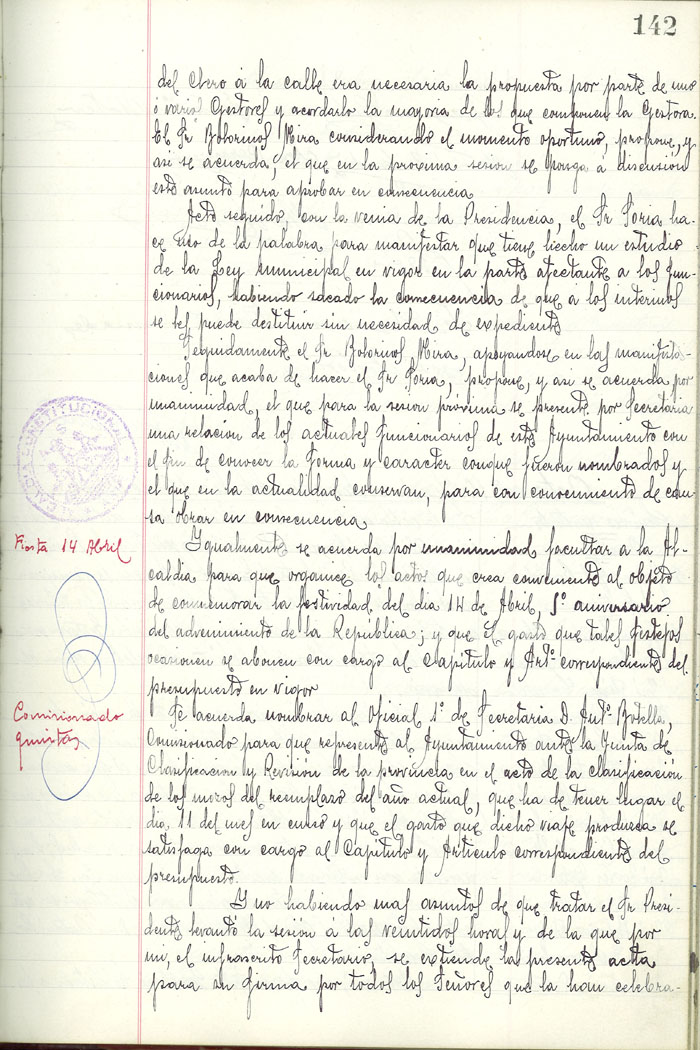 142
del Clero á la calle era necesaria la propuesta por parte de uno
ó varios Gestores y acordarlo la mayoria de los que componen la Gestora.
El Sr Botorinos Mira considerando el momento oportuno, propone, y
asi se acuerda, el que en la proxima sesion se ponga á discusion
este asunto para aprobar en consecuencia
Acto seguido, con la venia de la Presidencia, el Sr Soria ha-
ce uso de la palabra para manifestar que tiene hecho un estudio
de la Ley Municipal en vigor en la parte afectante a los fun-
cionarios, habiendo sacado la consecuencia de que á los interinos
se les puede destituir sin necesidad de expediente
Seguidamente el Sr Botorinos Mira, apoyandose en las manifesta-
ciones que acaba de hacer el Sr Soria, propone, y asi se acuerda por
unanimidad, el que para la sesion próxima se presente por Secretaria
una relacion de los actuales funcionarios de este Ayuntamiento con
el fin de conocer la forma y caracter conque fueron nombrados y
el que en la actualidad conservan, para con conocimiento de cau-
sa obrar en consecuencia
ALCALDIA CONSTITUCIONAL
Fiesta 14 Abril
Ygualmente se acuerda por unanimidad facultar a la Al-
caldia para que organice los actos que crea conveniente al objeto
de conmemorar la festividad del dia 14 de Abril, 5º aniversario
del advenimiento de la República; y que el gasto que tales festejos
ocasionen se abonen con cargo al Capitulo y Artº correspondiente del
presupuesto en vigor
Comisionado
quintas
Se acuerda nombrar al Oficial 1º de Secretaria D. Antº Botella,
Comisionado para que represente al Ayuntamiento ante la Junta de
Clasificacion y Revisión de la provincia en el acto de la clasificación
de los mozos del reemplazo del año actual, que ha de tener lugar el
dia 11 del mes en curso y que el gasto que dicho viaje produzca se
satisfaga con cargo al Capitulo y Articulo correspondiente del
presupuesto.
Y no habiendo mas asuntos de que tratar el Sr Presi-
dente levantó la sesión á las veintidos horas y de la que por
mi, el infrascrito Secretario, se extiende la presente acta
para su firma por todos los Señores que la han celebra-